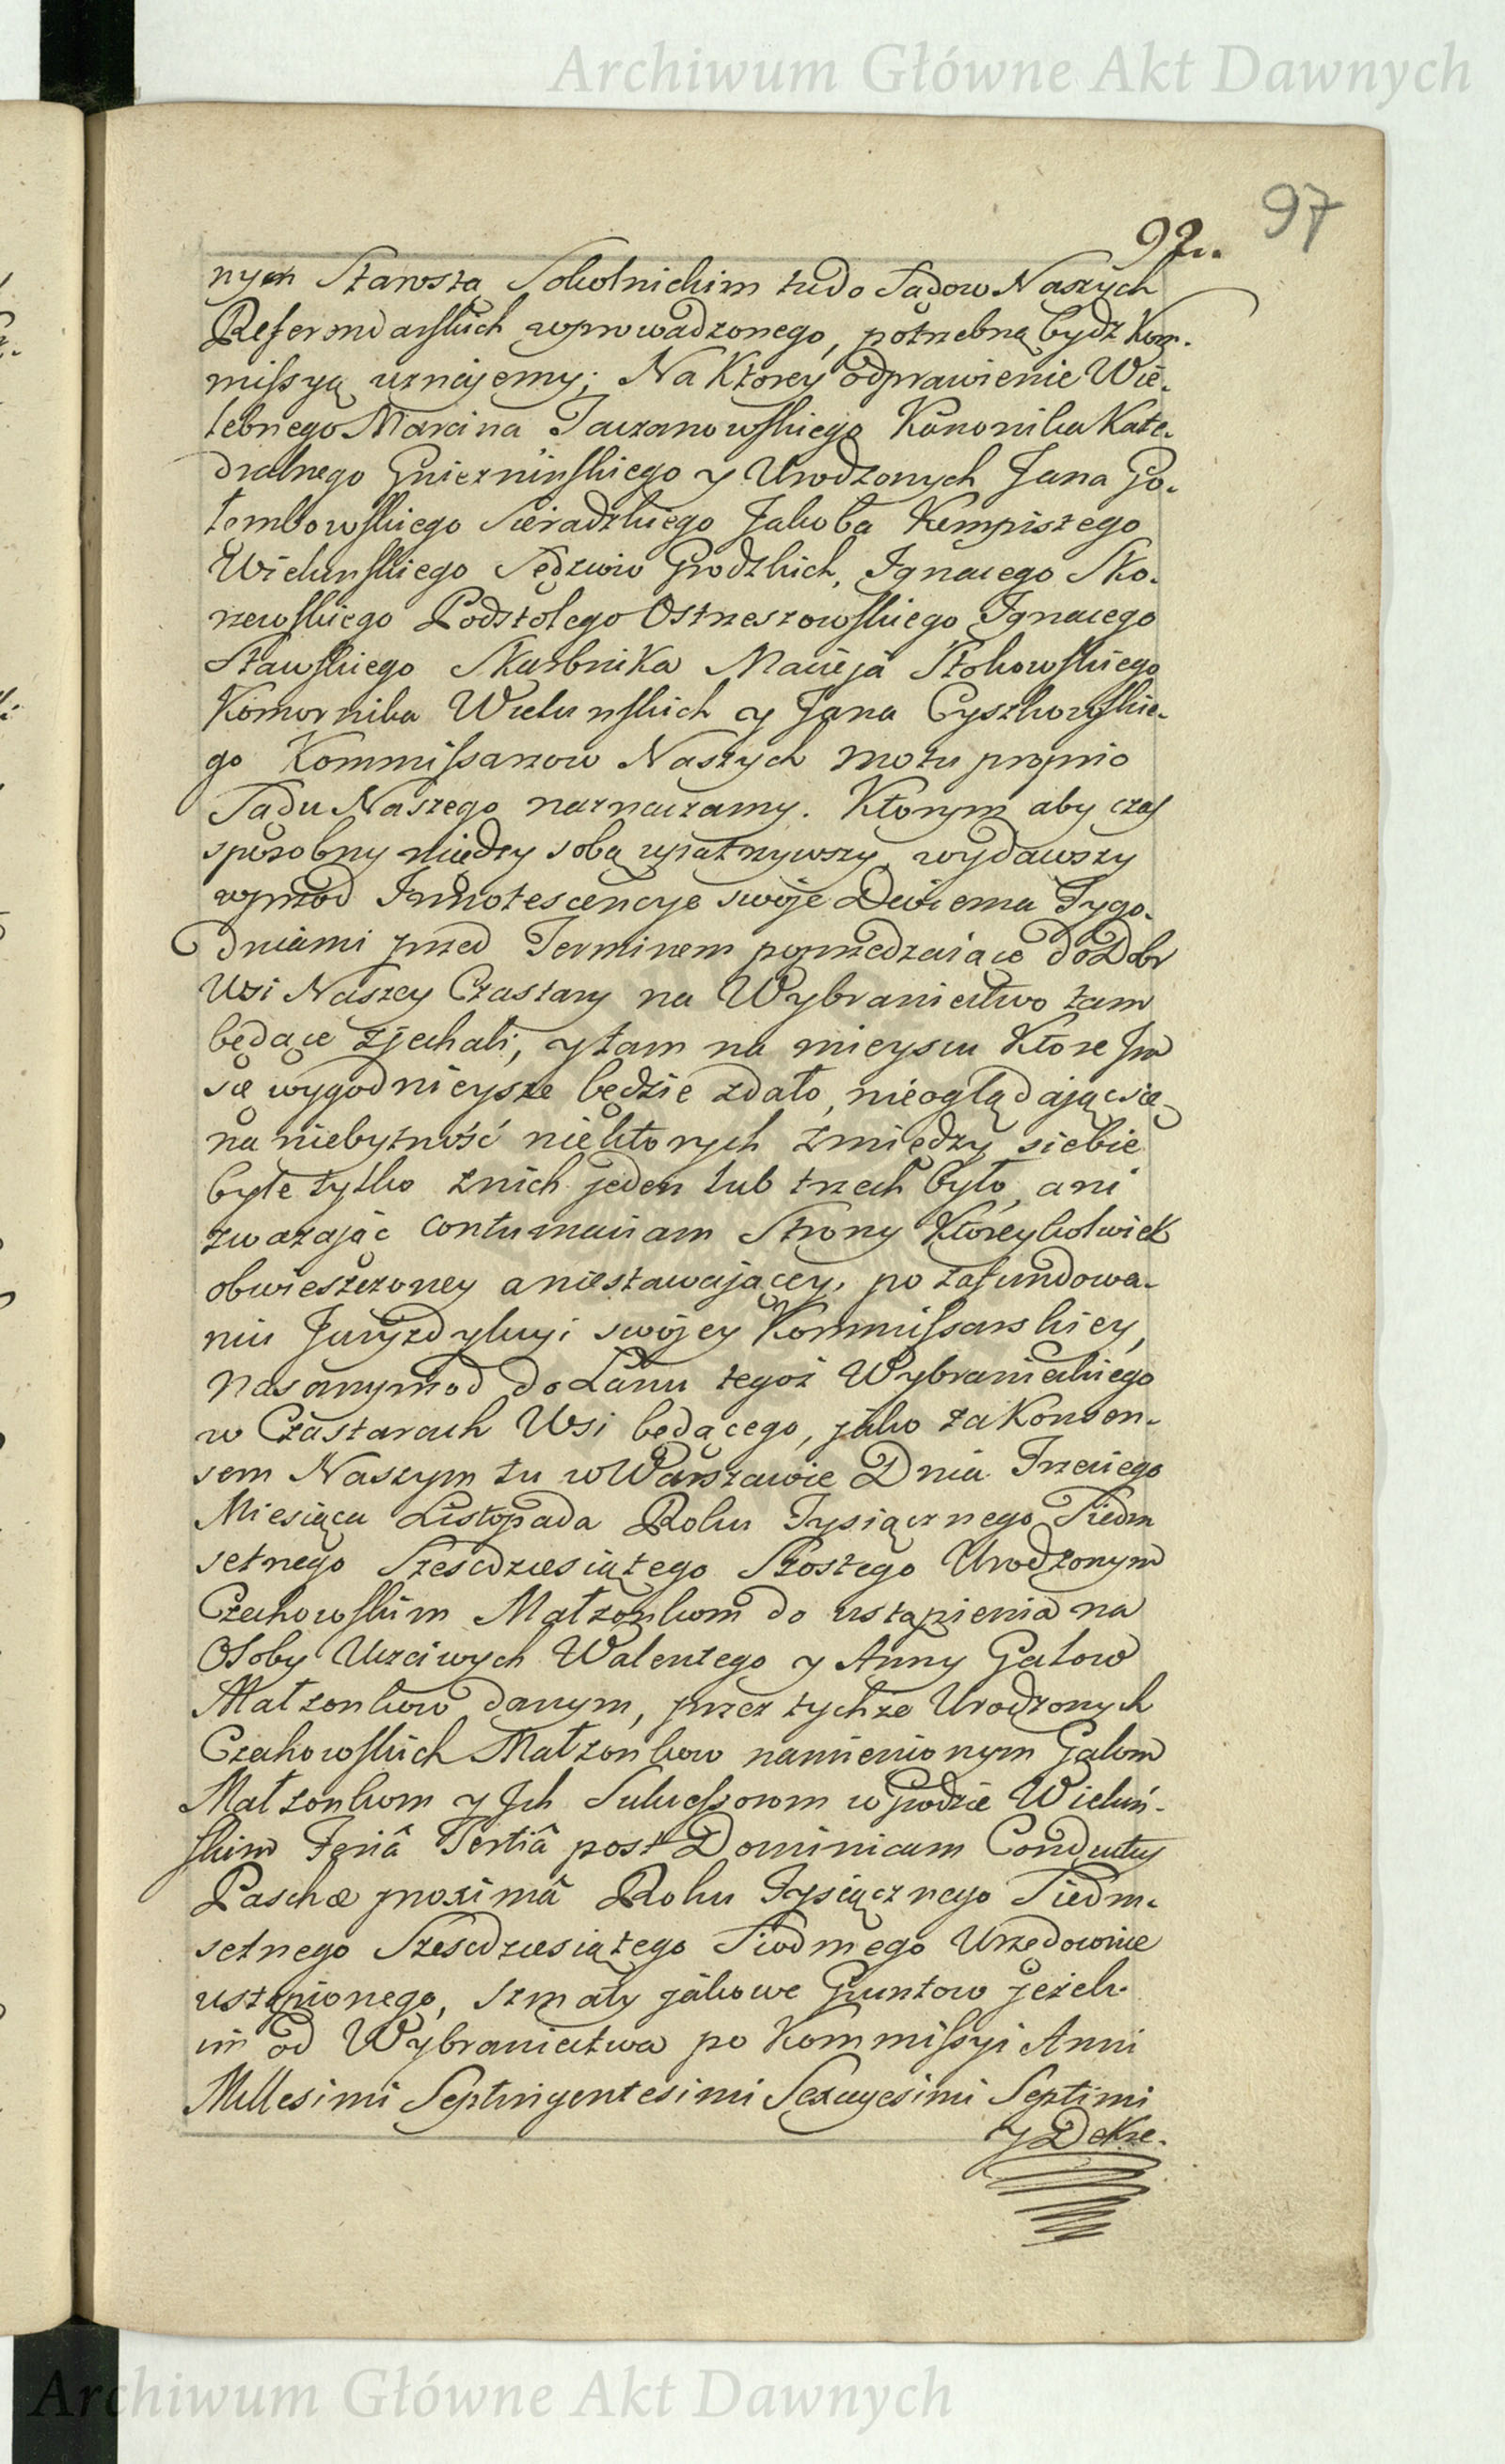 Archiwum Główne Akt Dawnych
97
92.
nym Starostą Sokolnickim tu do Sądow Naszych
Referendarskich wprowadzonego, potrzebną bydz Kom-
missyą uznajemy; Na Ktorey odprawienie Wie-
lebnego Marcina Taczanowskiego Kanonika Kate-
dralnego Gnieznińskiego y Urodzonych Jana Go-
łembowskiego Sieradzkiego Jakoba Kempistego
Wielunskiego Sędziow Grodzkich, Ignacego Sko-
rzewskiego Podstolego Ostrzeszowskiego Ignacego
Stawskiego Skarbnika Macieja Stokowskiego
Komornika Wielunskich y Jana Cyszkowskie-
go Kommissarzow Naszych motu proprio
Sądu Naszego naznaczamy. Ktorym aby czas
sposobny między sobą upatrzywszy, wydawszy
wprzod Innotescencye swoje Dwiema Tygo-
dniami przed Terminem poprzedzaiące do Dobr
Wsi Naszey Czastary na Wybraniectwo tam
będące zjechali, y tam na mieyscu Ktore Im
się wygodnieysze będzie zdało, nieoglądając się
na niebytność niektorych zmiędzy siebie
byle tylko znich jeden lub trzech było, ani
zważając contumaciam Strony Ktoreykolwiek
obwieszczoney a niestawającey, po zafundowa-
niu Juryzdykcyi swojey Kommissarskiey,
nasamprzod do Łanu tegoż Wybranieckiego
w Czastarach Wsi będącego, jako za Konsen-
sem Naszym tu w Warszawie Dnia Trzeciego
Miesiąca Listopada Roku Tysiącznego Siedm
setnego Szescdziesiątego Szostego Urodzonym
Czechowskim Małżonkom do ustąpienia na
Osoby Uczciwych Walentego y Anny Gałow
Małżonkow danym, przez tychże Urodzonych
Czechowskich Małżonkow namienionym Gałom
Małżonkom y Ich Sukcessorom w Grodzie Wieluń-
skim Feriâ Tertiâ post Dominicam Conductus
Paschæ proximâ Roku Tysiącznego Siedm-
setnego Szescdziesiątego Siodmego Urzędownie
ustąpionego, szmaty jakowe Gruntow jeżeli
im od Wybraniectwa po Kommissyi Anni
Millesimi Septingentesimi Sexagesimi Septimi
y Dekre-
Archiwum Główne Akt Dawnych